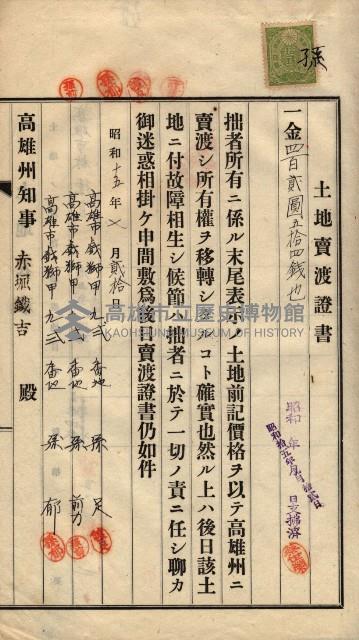 孫
土地賣渡證書
一金四百貳圓五拾四錢也
拙者所有ニ係ル末尾表示ノ土地前記價格ヲ以テ高雄州ニ
賣渡シ所有權ヲ移轉シタルコト確實也然ル上ハ後日該土
地ニ付故障相生シ候節ハ拙者ニ於テ一切ノ責ニ任シ聊カ
御迷惑相掛ケ申間敷爲後日賣渡證書仍如件
昭和十五年 月貳拾日
高雄市戲獅甲九三 番地 孫 足
高雄市戲獅甲九三 番地 孫
高雄市戲獅甲九三 番地 孫 郁
高雄州知事 赤堀鐵吉 殿
高雄市立歷史博物館
KAOHSIUNG MUSEUM OF HISTORY